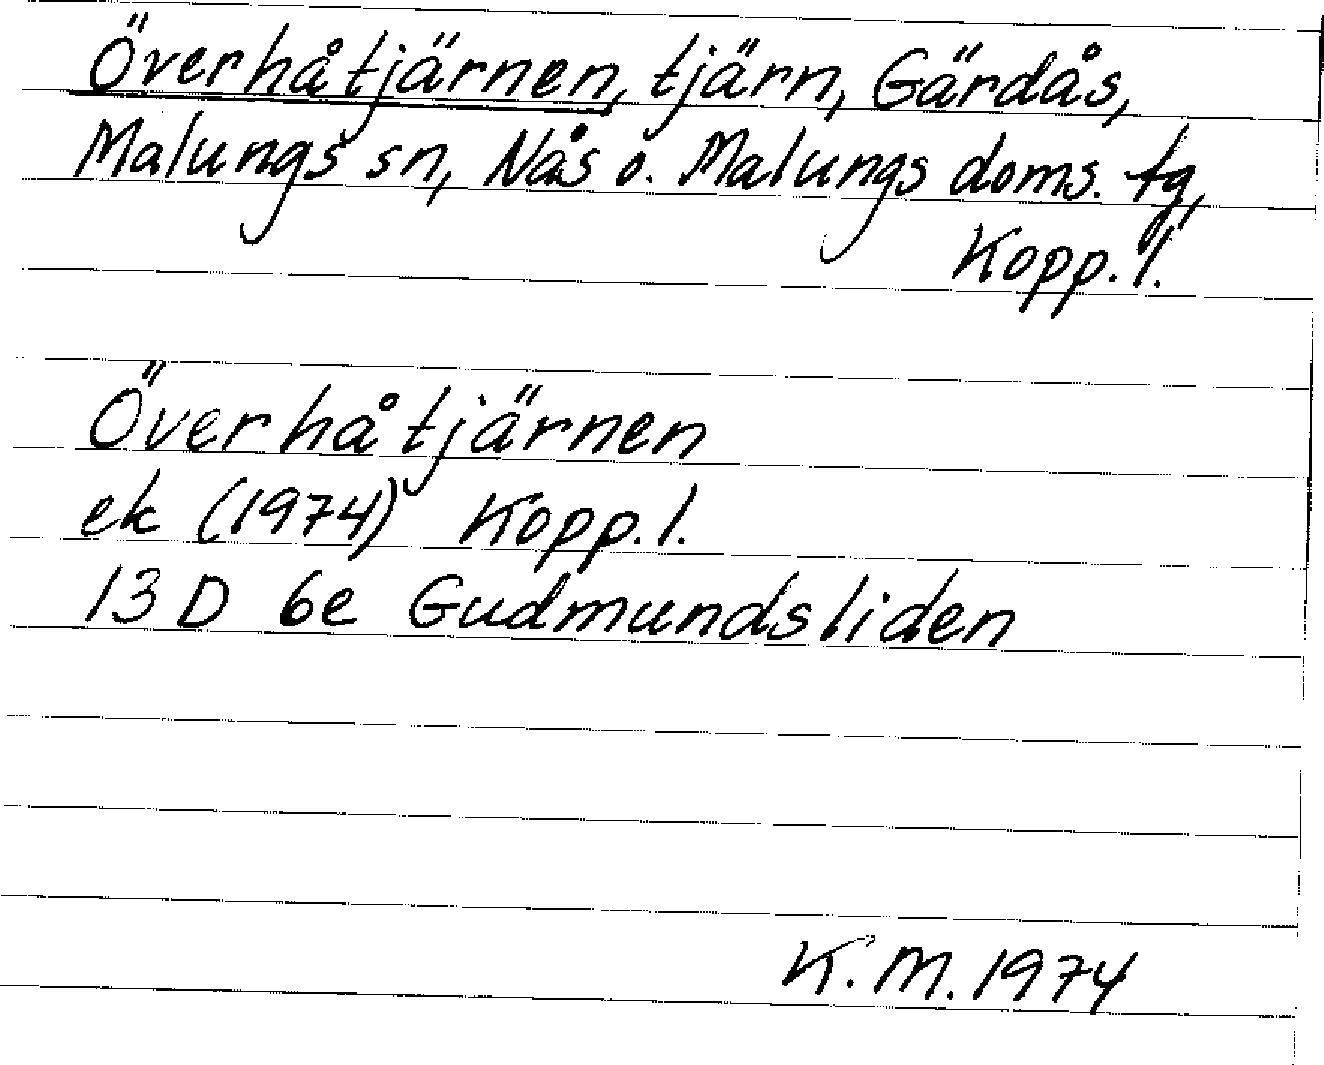 Överhåtjärnen, tjärn, Gärdås,
Malungs sn, Nås o. Malungs doms. tg,
Kopp. l.
Överhåtjärnen
ek (1974) Kopp. l.
13 D 6e Gudmundsliden
K. M. 1974